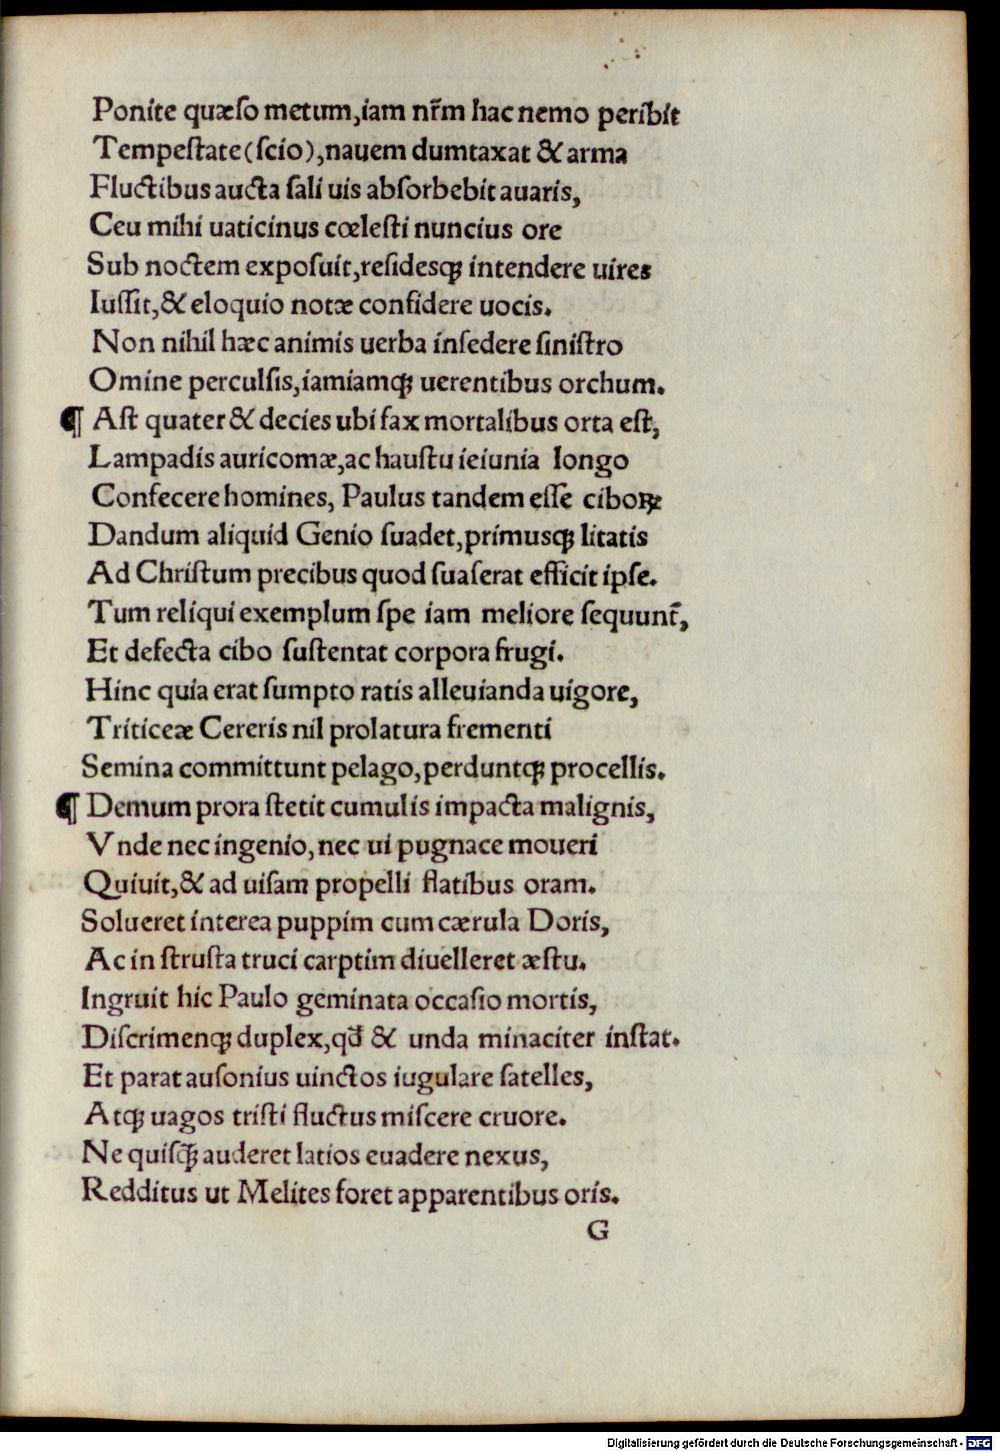 Ponite quæſo metum,iam nr̃m hac nemo peribit
Tempeſtate(ſcio),nauem dumtaxat & arma
Fluctibus aucta ſali uis abſorbebit auaris,
Ceu mihi uaticinus cœleſti nuncius ore
Sub noctem expoſuit,reſidesqꝫ intendere uires
Iuſſit,& eloquio notæ confidere uocis.
Non nihil hæc animis uerba inſedere ſiniſtro
Omine perculſis,iamiamqꝫ uerentibus orchum.
¶ Aſt quater & decies ubi fax mortalibus orta eſt,
Lampadis auricomæ,ac hauſtu ieiunia longo
Confecere homines, Paulus tandem eſſe ciboꝝ
Dandum aliquid Genio ſuadet,primusqꝫ litatis
Ad Chriſtum precibus quod ſuaſerat efficit ipſe.
Tum reliqui exemplum ſpe iam meliore ſequunt̃,
Et defecta cibo ſuſtentat corpora frugi.
Hinc quia erat ſumpto ratis alleuianda uigore,
Triticeæ Cereris nil prolatura frementi
Semina committunt pelago,perduntqꝫ procellis.
¶ Demum prora ſtetit cumulis impacta malignis,
Vnde nec ingenio,nec ui pugnace moueri
Quiuit,& ad uiſam propelli flatibus oram.
Solueret interea puppim cum cærula Doris,
Ac in ſtruſta truci carptim diuelleret æſtu.
Ingruit hic Paulo geminata occaſio mortis,
Diſcrimenqꝫ duplex,qđ & unda minaciter inſtat.
Et parat auſonius uinctos iugulare ſatelles,
Atqꝫ uagos triſti fluctus miſcere cruore.
Ne quiſqꝫ̃ auderet latios euadere nexus,
Redditus ut Melites foret apparentibus oris.
G
Digitalisierung gefördert durch die Deutsche Forschungsgemeinschaft - DFG